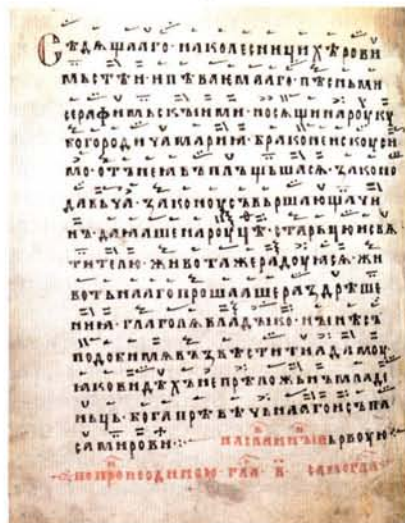 Сѣдѧщааго · на колесници хѣрови
мьстѣи · и пѣваѥмааго · пѣсньми
серафимьскꙑими · носѧщи на роукоу
богородица мариꙗ · браконеискоусь
мо · отъ неꙗ въплъщьшасѧ · закопо
давьца · законоу съвьршающа чи
нъ · дамаше на роуцѣ · старьцю и свѧ
тителю · живота же радоуꙗсѧ · жи
вотьнааго прошааше раздрѣше
ниꙗ · глаголѧ владꙑко · нꙑнѣ съ
подоби мѧ възвѣстити адамоу ·
ꙗко видѣхъ непрѣложьнъ младе
ньць · бога прѣвѣчьнааго и съпа
са мирови ·: